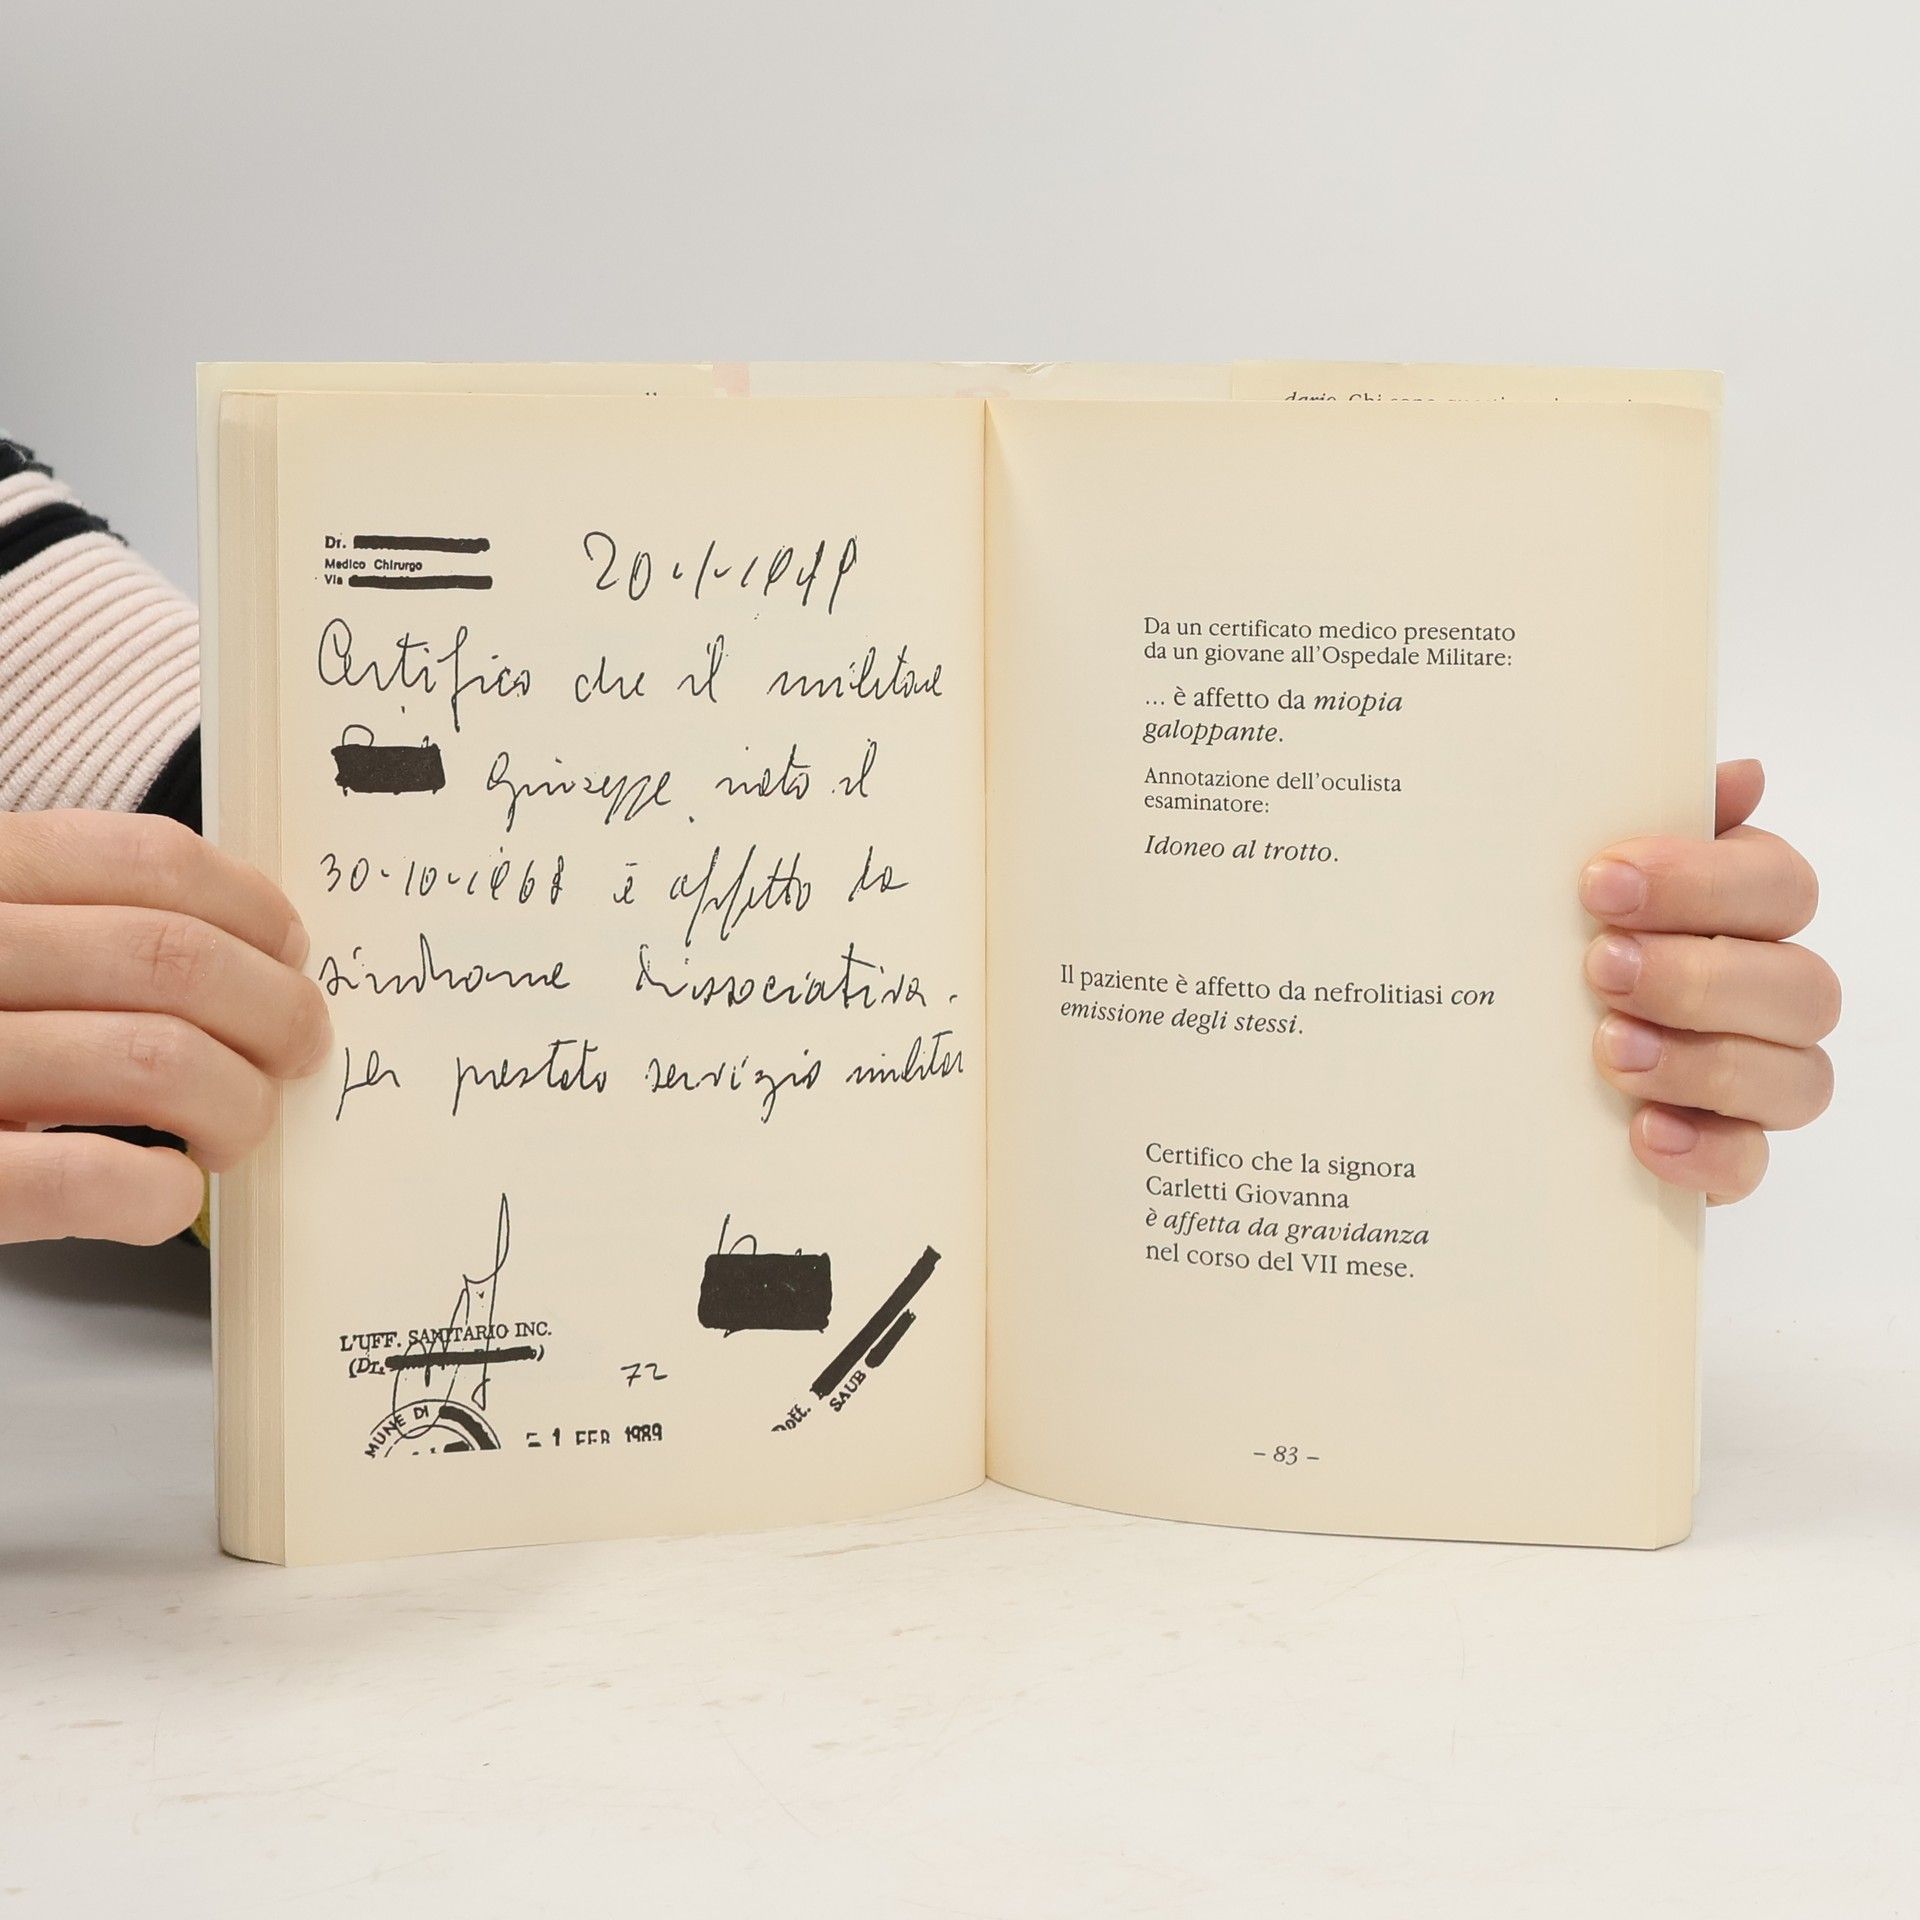 Dr.
Medico Chirurgo
Via
Certifico che il militare
Giuseppe nato il
30-10-1968 è affetto da
sindrome dissociativa.
per prestato servizio militar
L'UFF. SANITARIO INC.
(Dr.
72
MUNE DI
- 1 FEB 1989
Dott.
SAUB
Da un certificato medico presentato
da un giovane all'Ospedale Militare:
... è affetto da miopia
galoppante.
Annotazione dell'oculista
esaminatore:
Idoneo al trotto.
Il paziente è affetto da nefrolitiasi con
emissione degli stessi.
Certifico che la signora
Carletti Giovanna
è affetta da gravidanza
nel corso del VII mese.
– 83 –